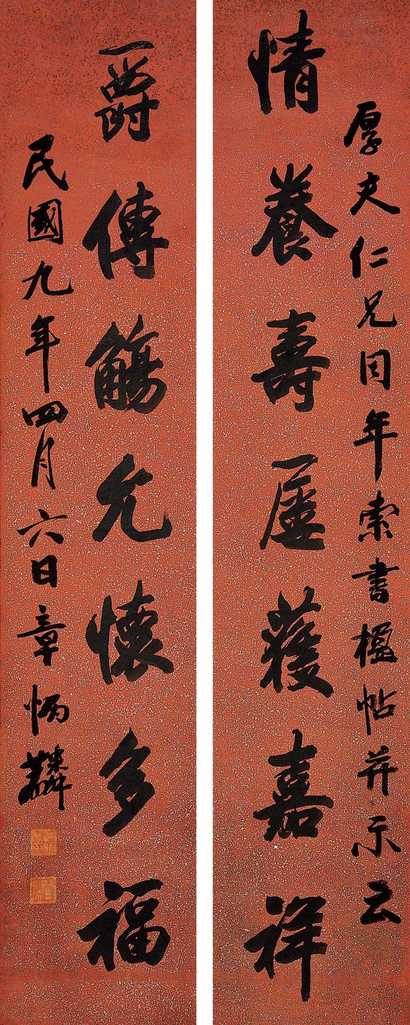 厚夫仁兄同年索書楹帖并示云
情養壽屢獲嘉祥
爵傳觴允懷多福
民國九年四月六日章炳麟